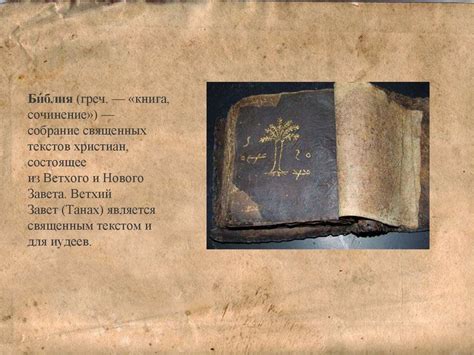 Би́блия (греч. — «книга,
сочинение») —
собрание священных
текстов христиан,
состоящее
из Ветхого и Нового
Завета. Ветхий
Завет (Танах) является
священным текстом и
для иудеев.